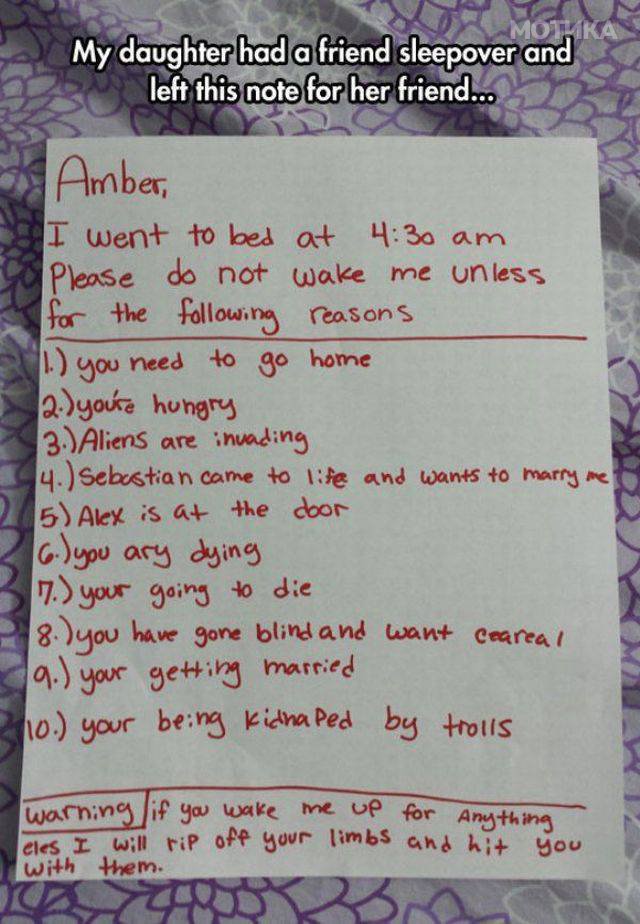 МОТИКА
My daughter had a friend sleepover and
left this note for her friend...
Amber,
I went to bed at 4:30 am
Please do not wake me unless
for the following reasons
1.) you need to go home
2.) you're hungry
3.) Aliens are invading
4.) Sebastian came to life and wants to marry me
5) Alex is at the door
6.) you ary dying
7.) your going to die
8.) you have gone blind and want ceareal
9.) your getting married
10.) your being kidnaped by trolls
Warning if you wake me up for Anything
eles I will rip off your limbs and hit you
with them.